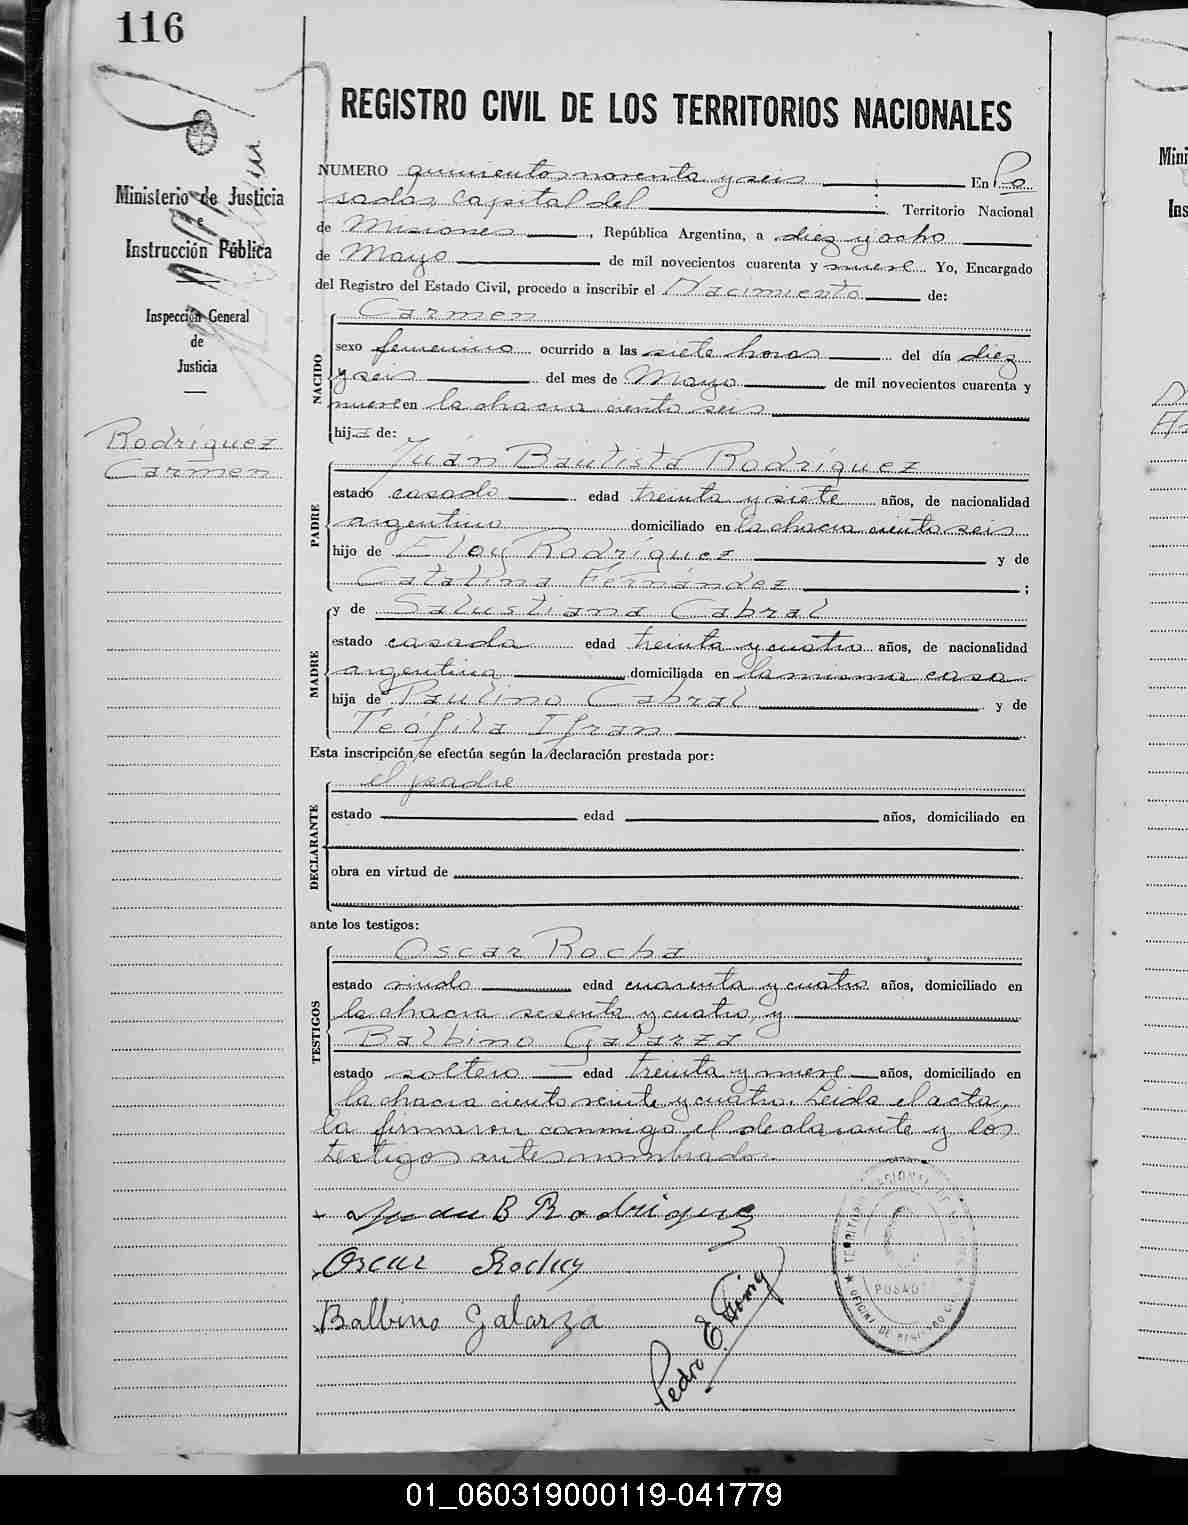 116
REGISTRO CIVIL DE LOS TERRITORIOS NACIONALES
Ministerio de Justicia
e
Instrucción Pública
Inspección General
de
Justicia
Rodríguez
Carmen
NUMERO quinientos noventa y seis En Po
sadas, Capital del Territorio Nacional
de Misiones, República Argentina, a diez y ocho
de Mayo de mil novecientos cuarenta y nueve Yo, Encargado
del Registro del Estado Civil, procedo a inscribir el Nacimiento de:
NACIDO
Carmen
sexo femenino ocurrido a las siete horas del día diez
y seis del mes de Mayo de mil novecientos cuarenta y
nueve en la chacra ciento seis
hija de:
PADRE
Juan Bautista Rodríguez
estado casado edad treinta y siete años, de nacionalidad
argentino domiciliado en la chacra ciento seis
hijo de Eloy Rodríguez y de
Catalina Fernández ;
MADRE
y de Salustiana Cabral
estado casada edad treinta y cuatro años, de nacionalidad
argentina domiciliada en la misma casa
hija de Paulino Cabral y de
Teófila Ifran
Esta inscripción se efectúa según la declaración prestada por:
DECLARANTE
el padre
estado edad años, domiciliado en
obra en virtud de
ante los testigos:
TESTIGOS
Oscar Rocha
estado viudo edad cuarenta y cuatro años, domiciliado en
la chacra sesenta y cuatro, y
Balbino Galarza
estado soltero edad treinta y nueve años, domiciliado en
la chacra ciento veinte y cuatro. Leída el acta,
la firmaron conmigo el declarante y los
testigos antes nombrados.
Juan B Rodriguez
Oscar Rocha
Balbino Galarza
Pedro E.
POSADAS
01_060319000119-041779